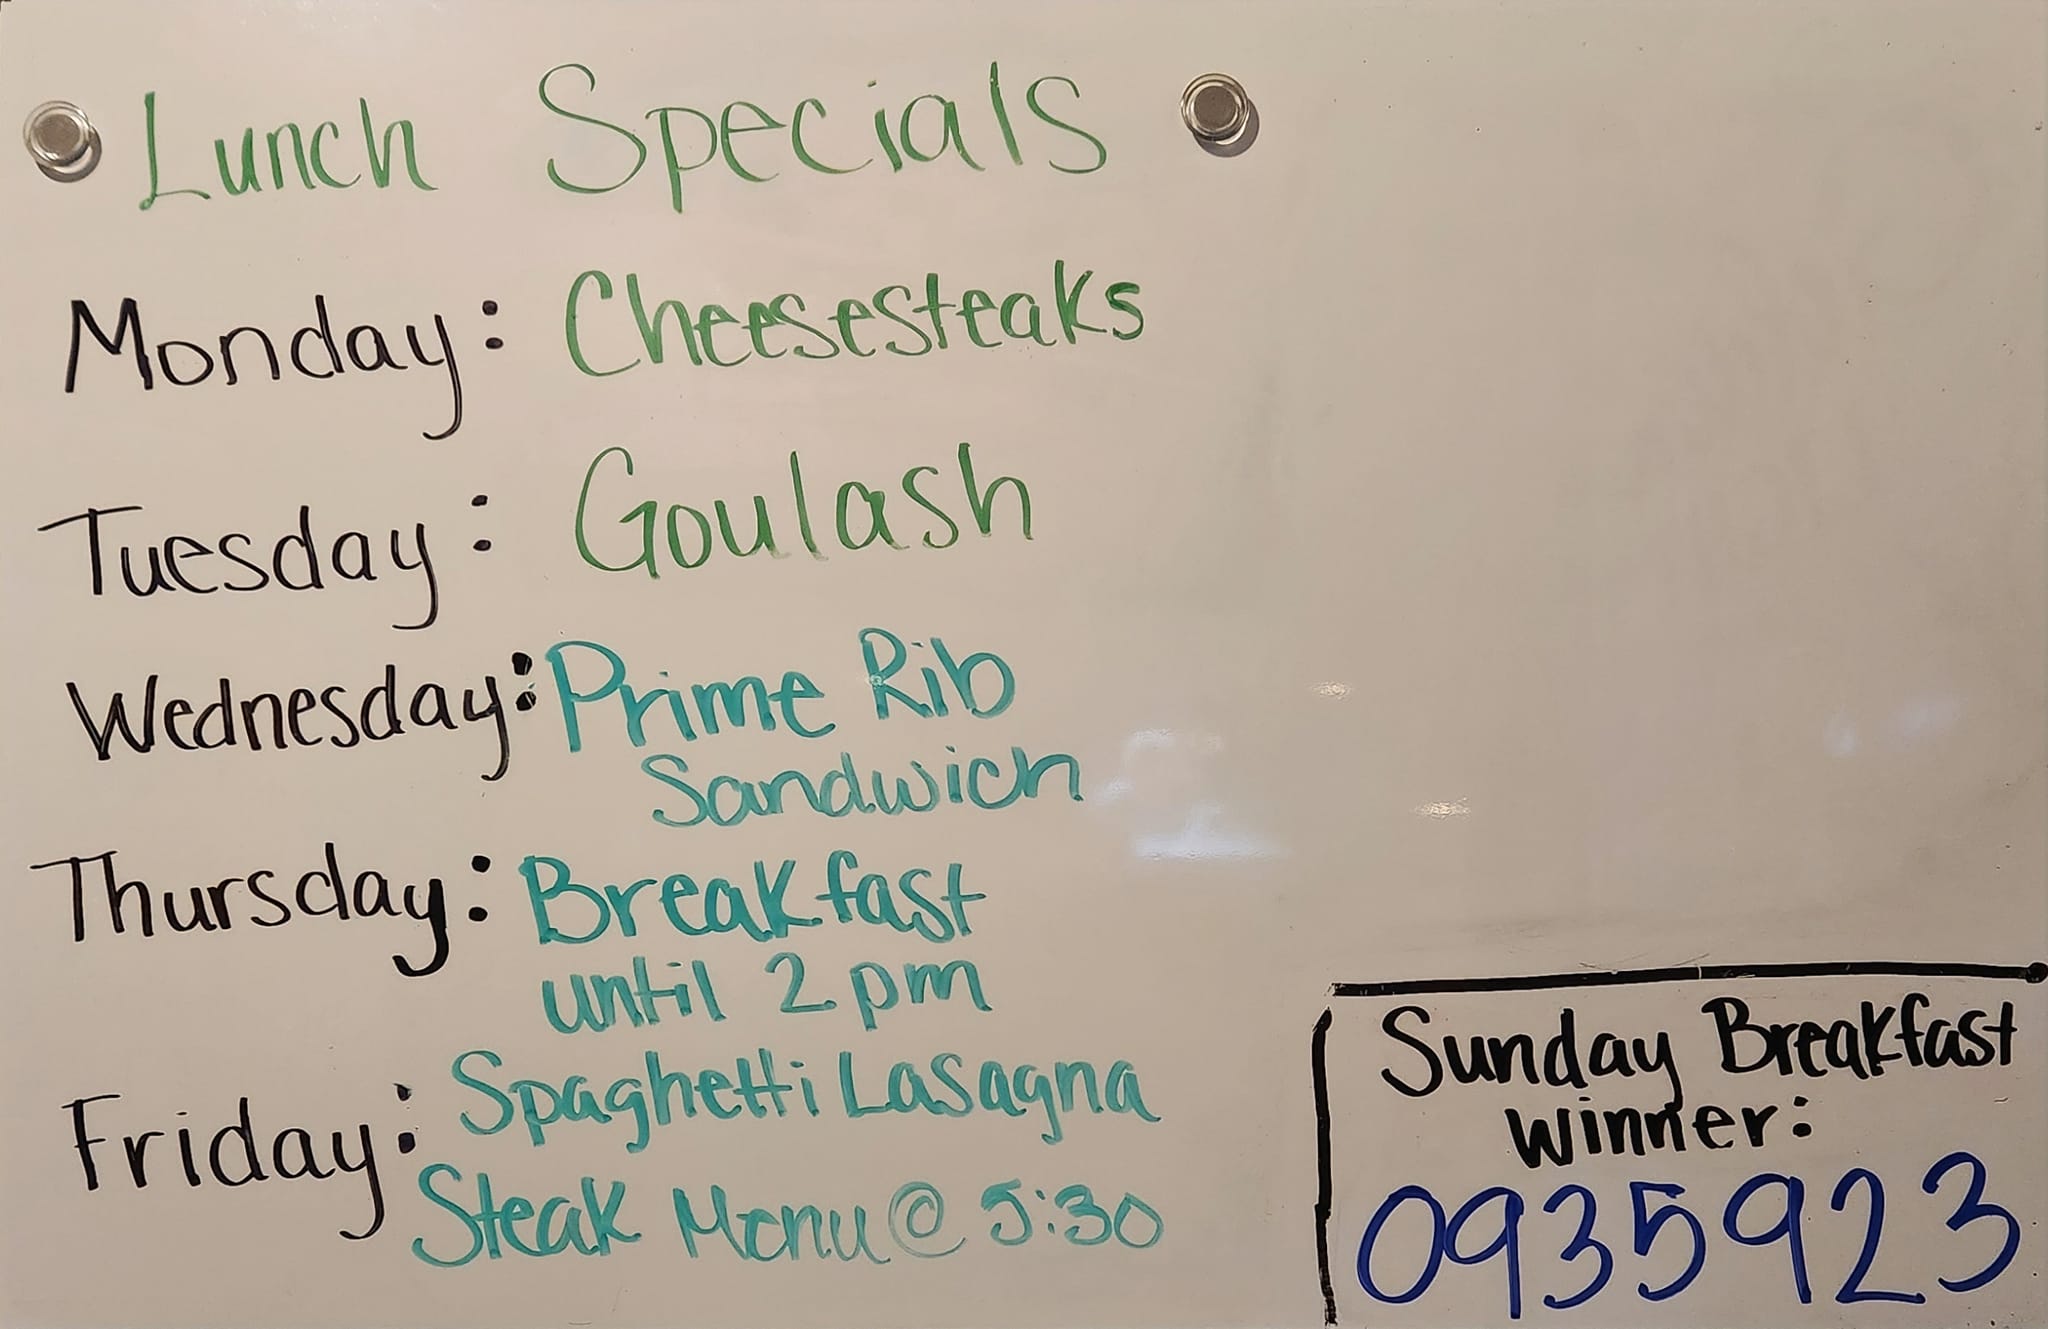 Lunch Specials
Monday: Cheesesteaks
Tuesday: Goulash
Wednesday: Prime Rib
Sandwich
Thursday: Breakfast
until 2 pm
Friday: Spaghetti Lasagna
Steak Menu @ 5:30
Sunday Breakfast
Winner:
0935923